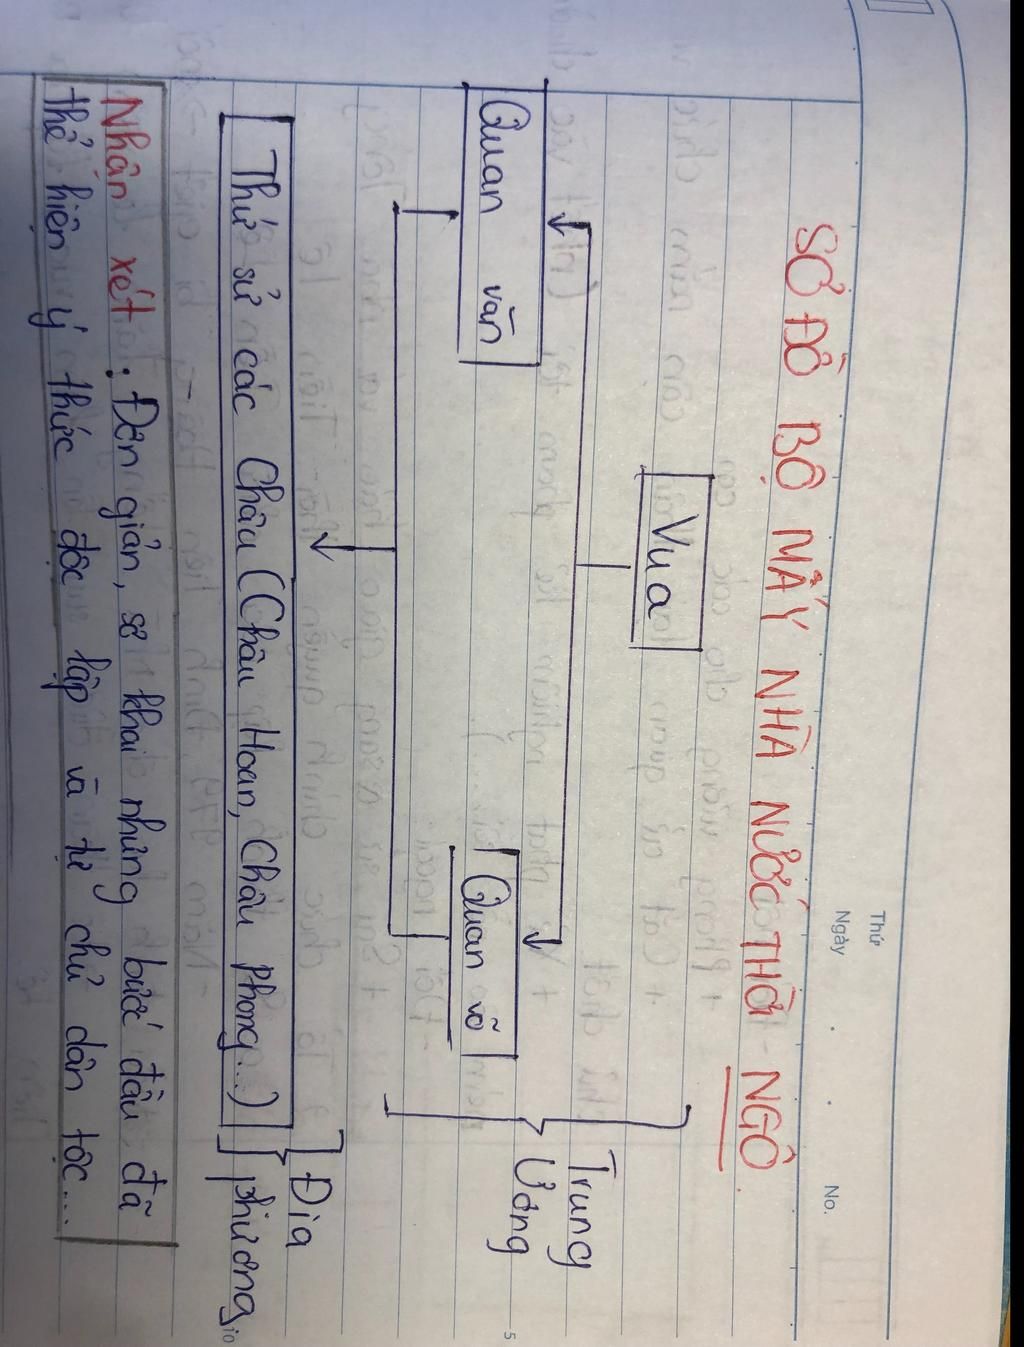 Thứ
Ngày . .
No.
SƠ ĐỒ BỘ MÁY NHÀ NƯỚC THỜI NGÔ
Vua
Quan văn
Quan võ
Trung
Ương
Thứ sử các Châu (Châu Hoan, Châu Phong...)
Địa
phương
Nhận xét: Đơn giản, sơ khai nhưng bước đầu đã
thể hiện ý thức độc lập và tự chủ dân tộc...
5
10